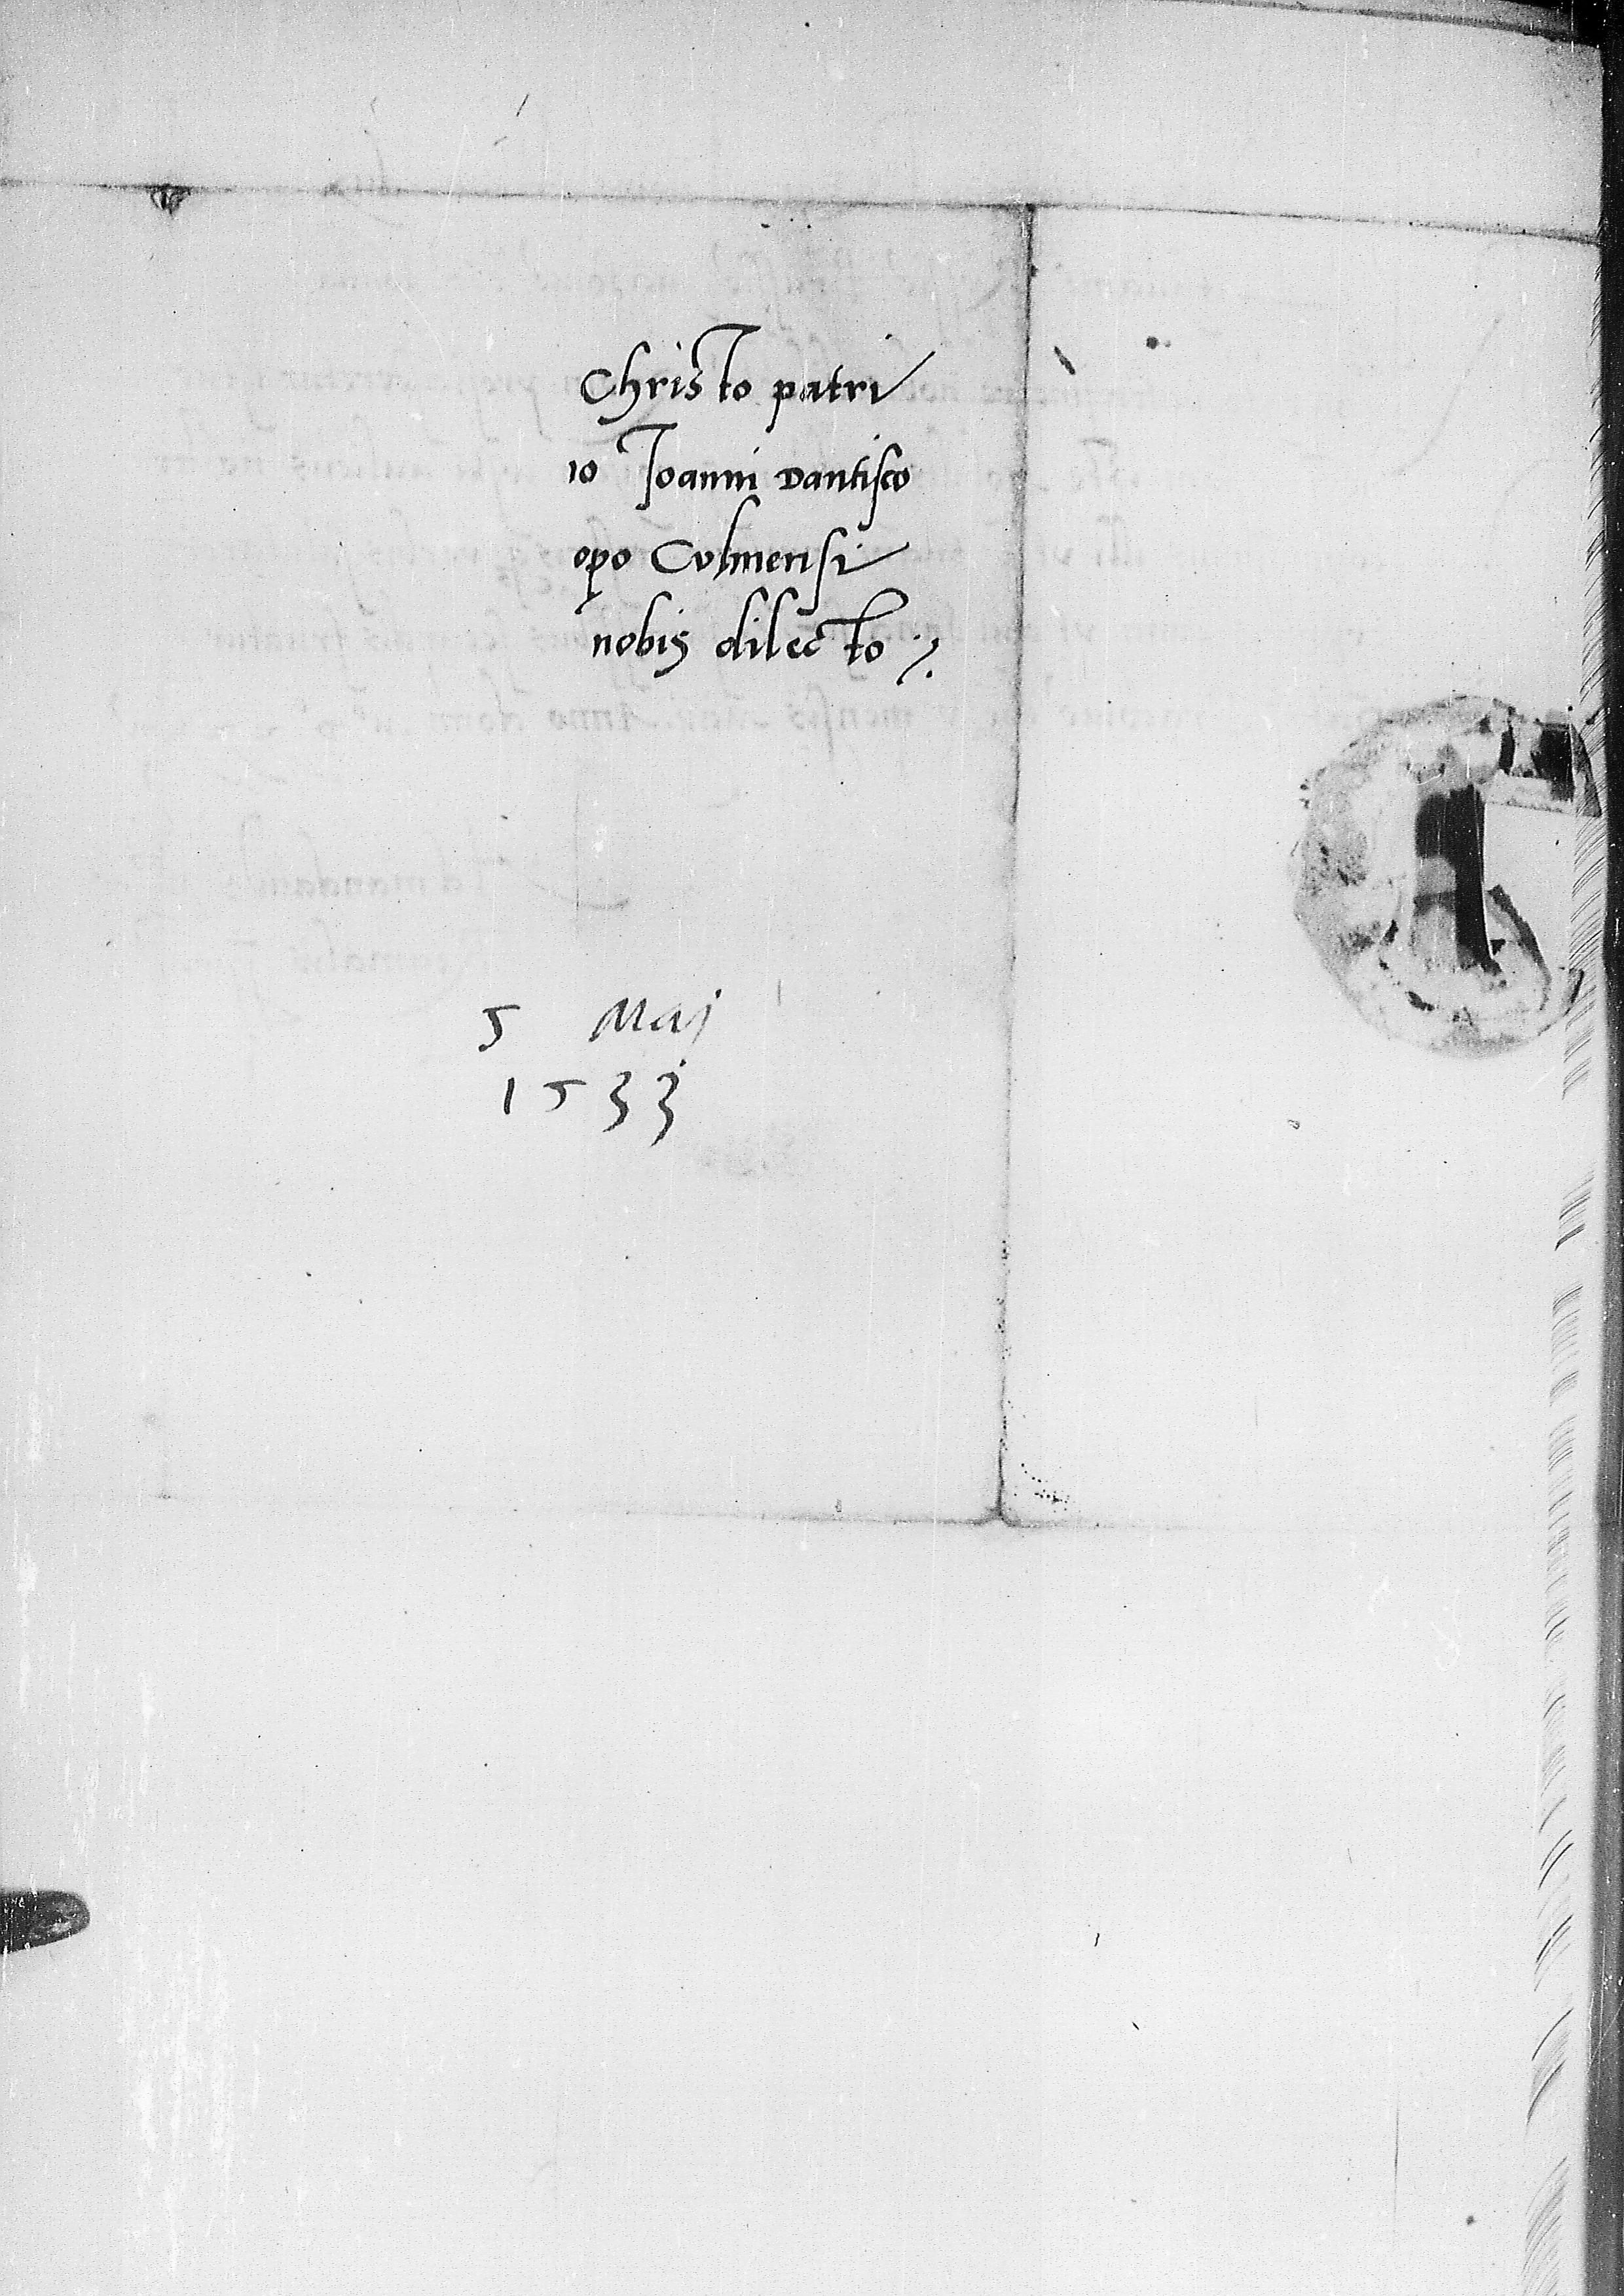 Christo patri
io Joanni Dantisco
opo Culmensi
nobis dilecto
5 Maj
1533